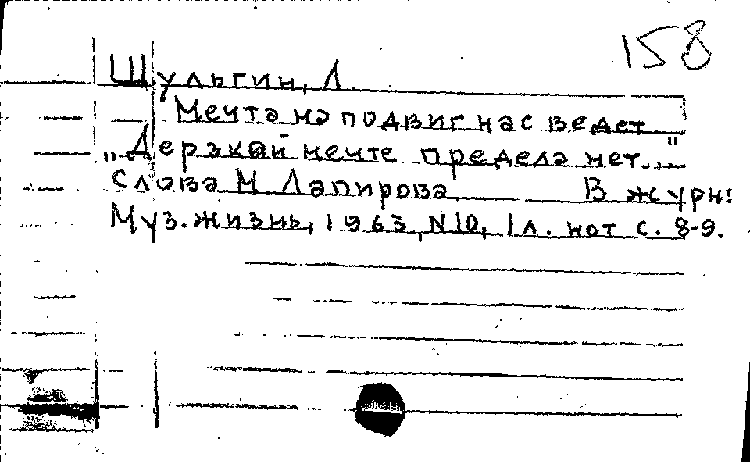 158
Шульгин, Л.
Мечта на подвиг нас ведет
„Дерзкой мечте предела нет..."
Слова М Лапирова В журн:
Муз. жизнь, 1963, N10, 1л. нот с. 8-9.